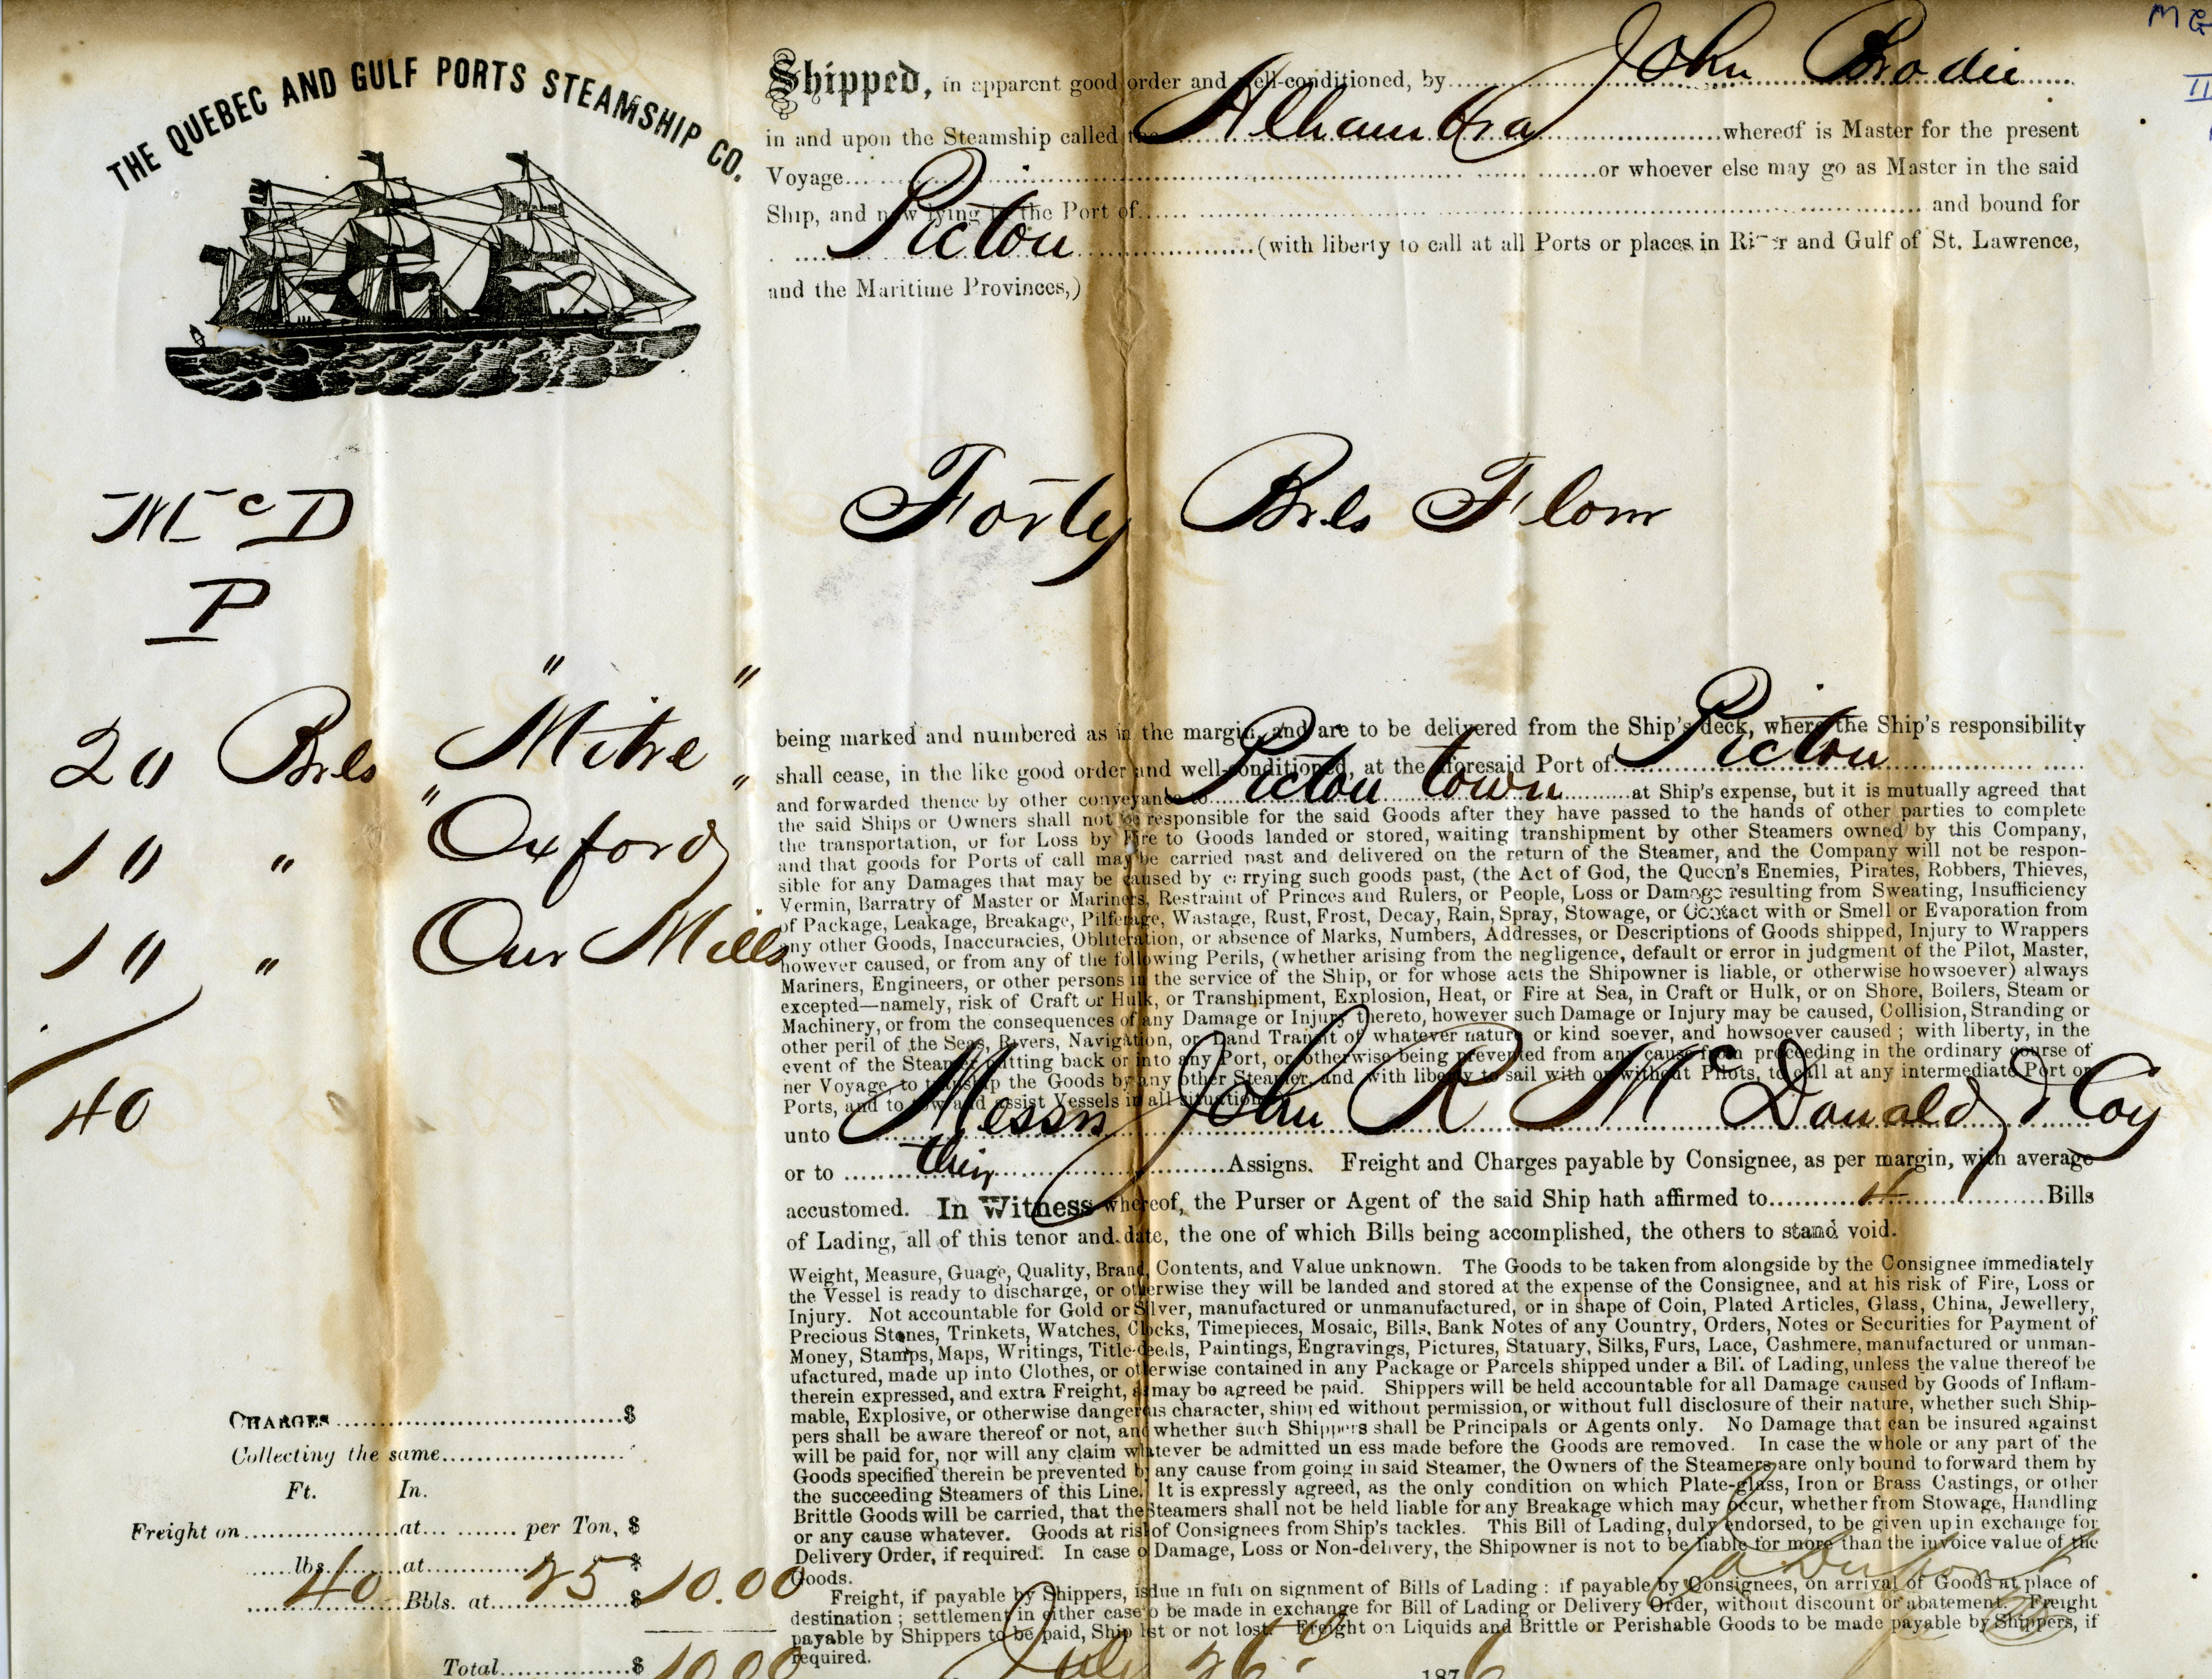 THE QUEBEC AND GULF PORTS STEAMSHIP CO.
Shipped, in apparent good order and well-conditioned, by John Brodie
in and upon the Steamship called the Alhambra whereof is Master for the present
Voyage or whoever else may go as Master in the said
Ship, and now lying in the Port of and bound for
Pictou (with liberty to call at all Ports or places in River and Gulf of St. Lawrence,
and the Maritime Provinces,)
McD
P
Forty Brls Flour
20 Brls "Mitre"
10 " "Oxford"
10 " Our Mills
40
being marked and numbered as in the margin, and are to be delivered from the Ship's deck, where the Ship's responsibility
shall cease, in the like good order and well-conditioned, at the aforesaid Port of Pictou
and forwarded thence by other conveyance to Pictou town at Ship's expense, but it is mutually agreed that
the said Ships or Owners shall not be responsible for the said Goods after they have passed to the hands of other parties to complete
the transportation, or for Loss by Fire to Goods landed or stored, waiting transhipment by other Steamers owned by this Company,
and that goods for Ports of call may be carried past and delivered on the return of the Steamer, and the Company will not be respon-
sible for any Damages that may be caused by carrying such goods past, (the Act of God, the Queen's Enemies, Pirates, Robbers, Thieves,
Vermin, Barratry of Master or Mariners, Restraint of Princes and Rulers, or People, Loss or Damage resulting from Sweating, Insufficiency
of Package, Leakage, Breakage, Pilferage, Wastage, Rust, Frost, Decay, Rain, Spray, Stowage, or Contact with or Smell or Evaporation from
any other Goods, Inaccuracies, Obliteration, or absence of Marks, Numbers, Addresses, or Descriptions of Goods shipped, Injury to Wrappers
however caused, or from any of the following Perils, (whether arising from the negligence, default or error in judgment of the Pilot, Master,
Mariners, Engineers, or other persons in the service of the Ship, or for whose acts the Shipowner is liable, or otherwise howsoever) always
excepted—namely, risk of Craft or Hulk, or Transhipment, Explosion, Heat, or Fire at Sea, in Craft or Hulk, or on Shore, Boilers, Steam or
Machinery, or from the consequences of any Damage or Injury thereto, however such Damage or Injury may be caused, Collision, Stranding or
other peril of the Seas, Rivers, Navigation, or Land Transit of whatever nature or kind soever, and howsoever caused ; with liberty, in the
event of the Steamer putting back or into any Port, or otherwise being prevented from any cause from proceeding in the ordinary course of
her Voyage, to tranship the Goods by any other Steamer, and with liberty to sail with or without Pilots, to call at any intermediate Port or
Ports, and to tow and assist Vessels in all situations
unto Messrs John R McDonald & Coy
or to their Assigns. Freight and Charges payable by Consignee, as per margin, with average
accustomed. In Witness whereof, the Purser or Agent of the said Ship hath affirmed to 4 Bills
of Lading, all of this tenor and date, the one of which Bills being accomplished, the others to stand void.
Weight, Measure, Guage, Quality, Brand, Contents, and Value unknown. The Goods to be taken from alongside by the Consignee immediately
the Vessel is ready to discharge, or otherwise they will be landed and stored at the expense of the Consignee, and at his risk of Fire, Loss or
Injury. Not accountable for Gold or Silver, manufactured or unmanufactured, or in shape of Coin, Plated Articles, Glass, China, Jewellery,
Precious Stones, Trinkets, Watches, Clocks, Timepieces, Mosaic, Bills, Bank Notes of any Country, Orders, Notes or Securities for Payment of
Money, Stamps, Maps, Writings, Title-deeds, Paintings, Engravings, Pictures, Statuary, Silks, Furs, Lace, Cashmere, manufactured or unman-
ufactured, made up into Clothes, or otherwise contained in any Package or Parcels shipped under a Bill of Lading, unless the value thereof be
therein expressed, and extra Freight, as may be agreed be paid. Shippers will be held accountable for all Damage caused by Goods of Inflam-
mable, Explosive, or otherwise dangerous character, shipped without permission, or without full disclosure of their nature, whether such Ship-
pers shall be aware thereof or not, and whether such Shippers shall be Principals or Agents only. No Damage that can be insured against
will be paid for, nor will any claim whatever be admitted unless made before the Goods are removed. In case the whole or any part of the
Goods specified therein be prevented by any cause from going in said Steamer, the Owners of the Steamers are only bound to forward them by
the succeeding Steamers of this Line. It is expressly agreed, as the only condition on which Plate-glass, Iron or Brass Castings, or other
Brittle Goods will be carried, that the Steamers shall not be held liable for any Breakage which may occur, whether from Stowage, Handling
or any cause whatever. Goods at risk of Consignees from Ship's tackles. This Bill of Lading, duly endorsed, to be given up in exchange for
Delivery Order, if required. In case of Damage, Loss or Non-delivery, the Shipowner is not to be liable for more than the invoice value of the
Goods.
Freight, if payable by Shippers, is due in full on signment of Bills of Lading : if payable by Consignees, on arrival of Goods at place of
destination ; settlement in either case to be made in exchange for Bill of Lading or Delivery Order, without discount or abatement. Freight
payable by Shippers to be paid, Ship lost or not lost. Freight on Liquids and Brittle or Perishable Goods to be made payable by Shippers, if
required.
CHARGES $
Collecting the same
Ft. In.
Freight on at per Ton, $
lbs. at $
40 Bbls. at 25 $ 10.00
Total $ 10.00
July 26 1876
MG
II